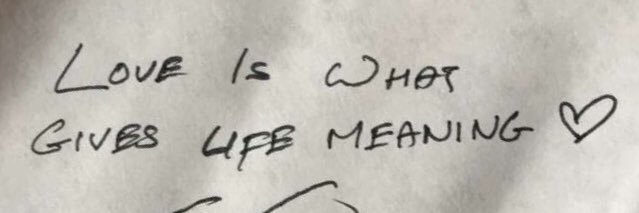 LOVE IS WHAT
GIVES LIFE MEANING ♡